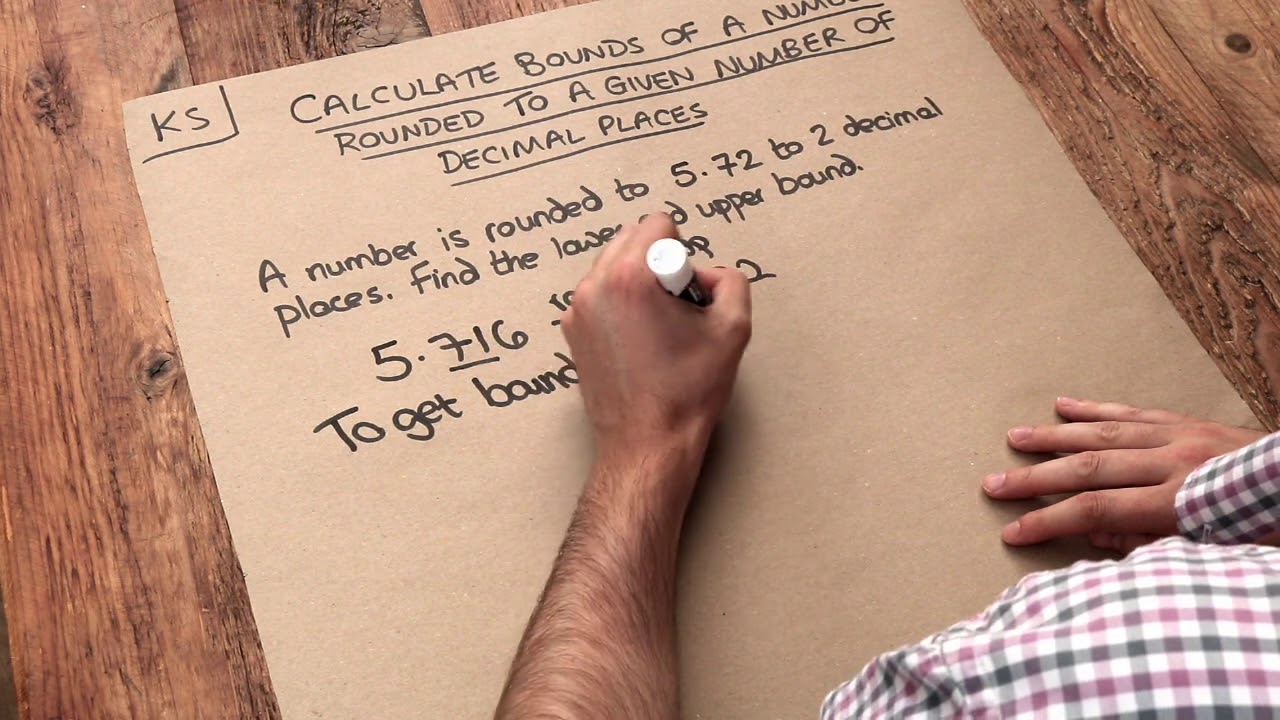 KS
CALCULATE BOUNDS OF A
ROUNDED TO A GIVEN NUMBER OF
DECIMAL PLACES
A number is rounded to 5.72 to 2 decimal
places. Find the upper bound.
5.716
To get